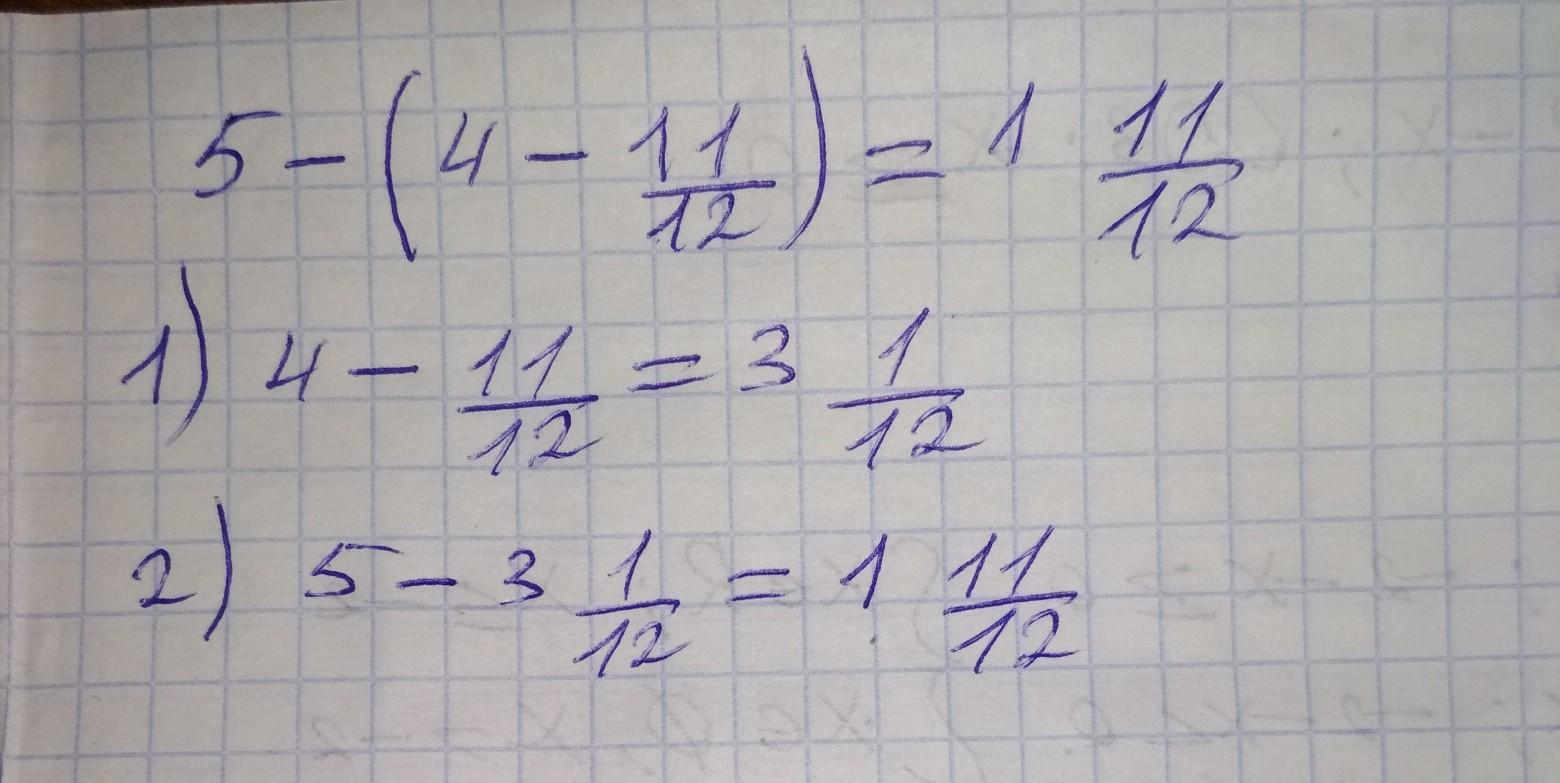 5 - (4 - 11/12) = 1 11/12
1) 4 - 11/12 = 3 1/12
2) 5 - 3 1/12 = 1 11/12